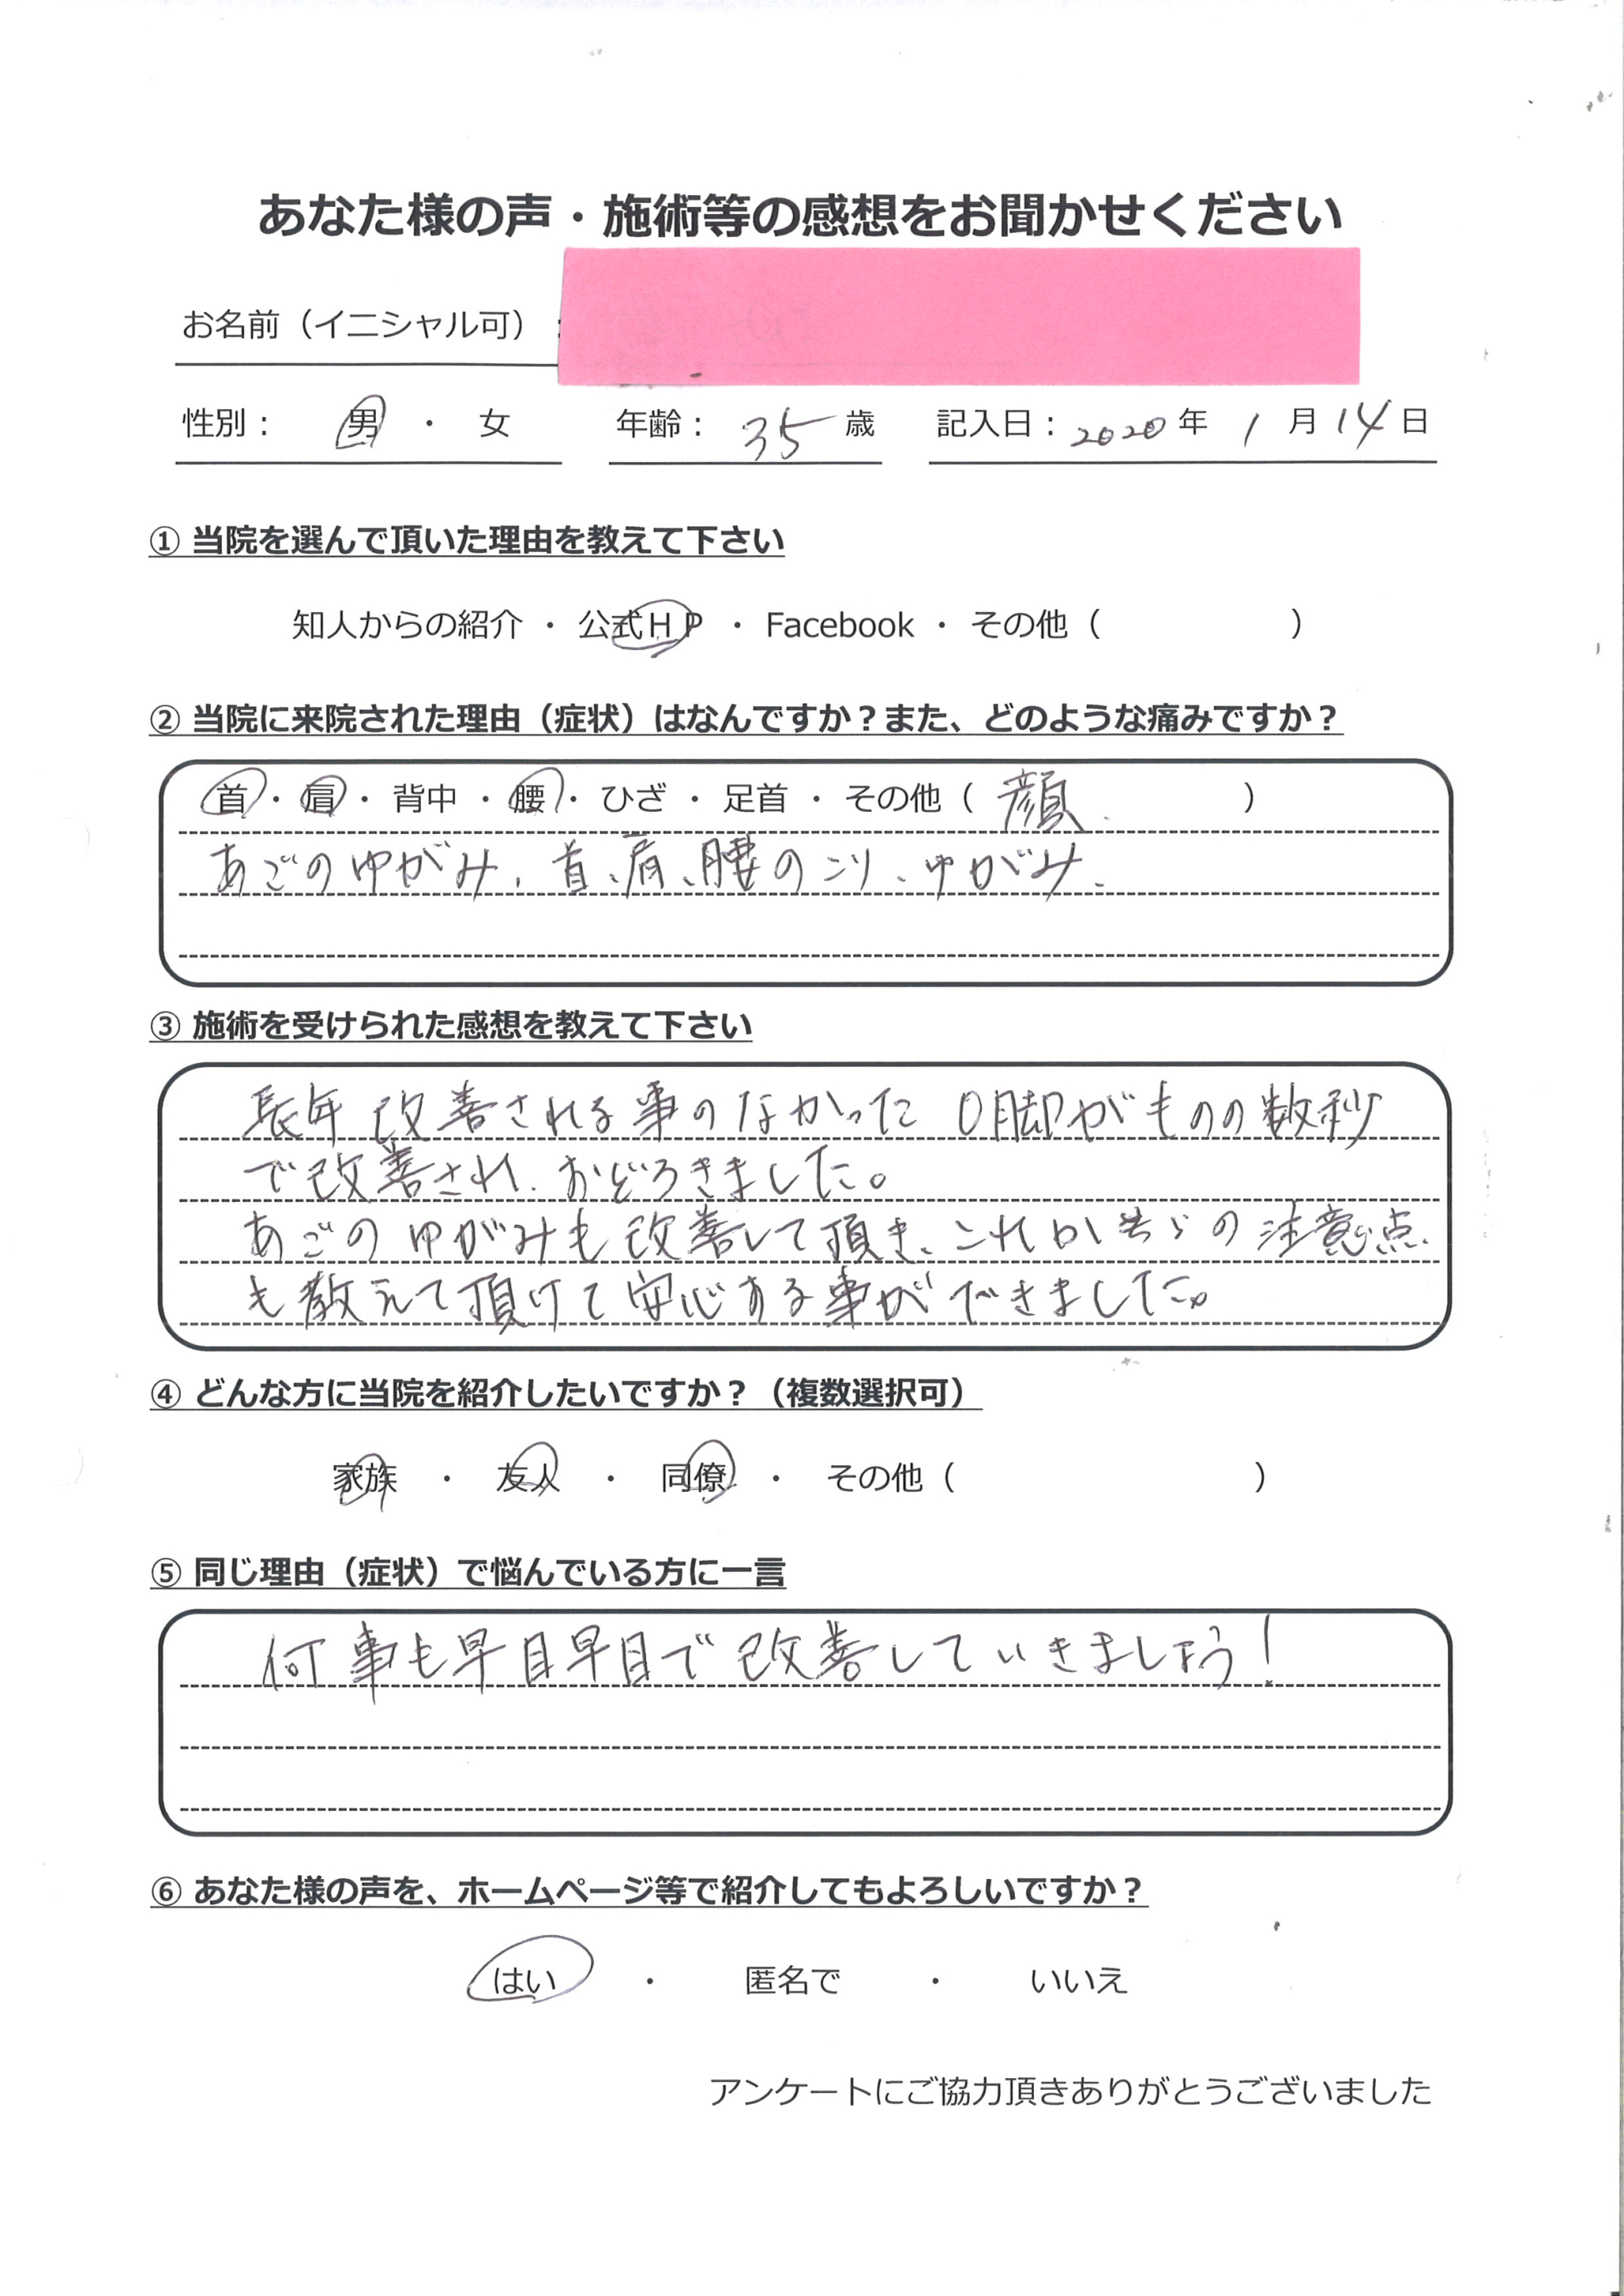 あなた様の声・施術等の感想をお聞かせください
お名前（イニシャル可）：
性別： 男 ・ 女 年齢： 35 歳 記入日： 2020 年 1 月 14 日
① 当院を選んで頂いた理由を教えて下さい
知人からの紹介 ・ 公式HP ・ Facebook ・ その他（ ）
② 当院に来院された理由（症状）はなんですか？また、どのような痛みですか？
首 ・ 肩 ・ 背中 ・ 腰 ・ ひざ ・ 足首 ・ その他（ 顔 ）
あごのゆがみ、首、肩、腰のこり、ゆがみ、
③ 施術を受けられた感想を教えて下さい
長年改善される事のなかったO脚がものの数秒
で改善され、おどろきました。
あごのゆがみも改善して頂き、これからの注意点
も教えて頂けて安心する事ができました。
④ どんな方に当院を紹介したいですか？（複数選択可）
家族 ・ 友人 ・ 同僚 ・ その他（ ）
⑤ 同じ理由（症状）で悩んでいる方に一言
何事も早目早目で改善していきましょう！
⑥ あなた様の声を、ホームページ等で紹介してもよろしいですか？
はい ・ 匿名で ・ いいえ
アンケートにご協力頂きありがとうございました